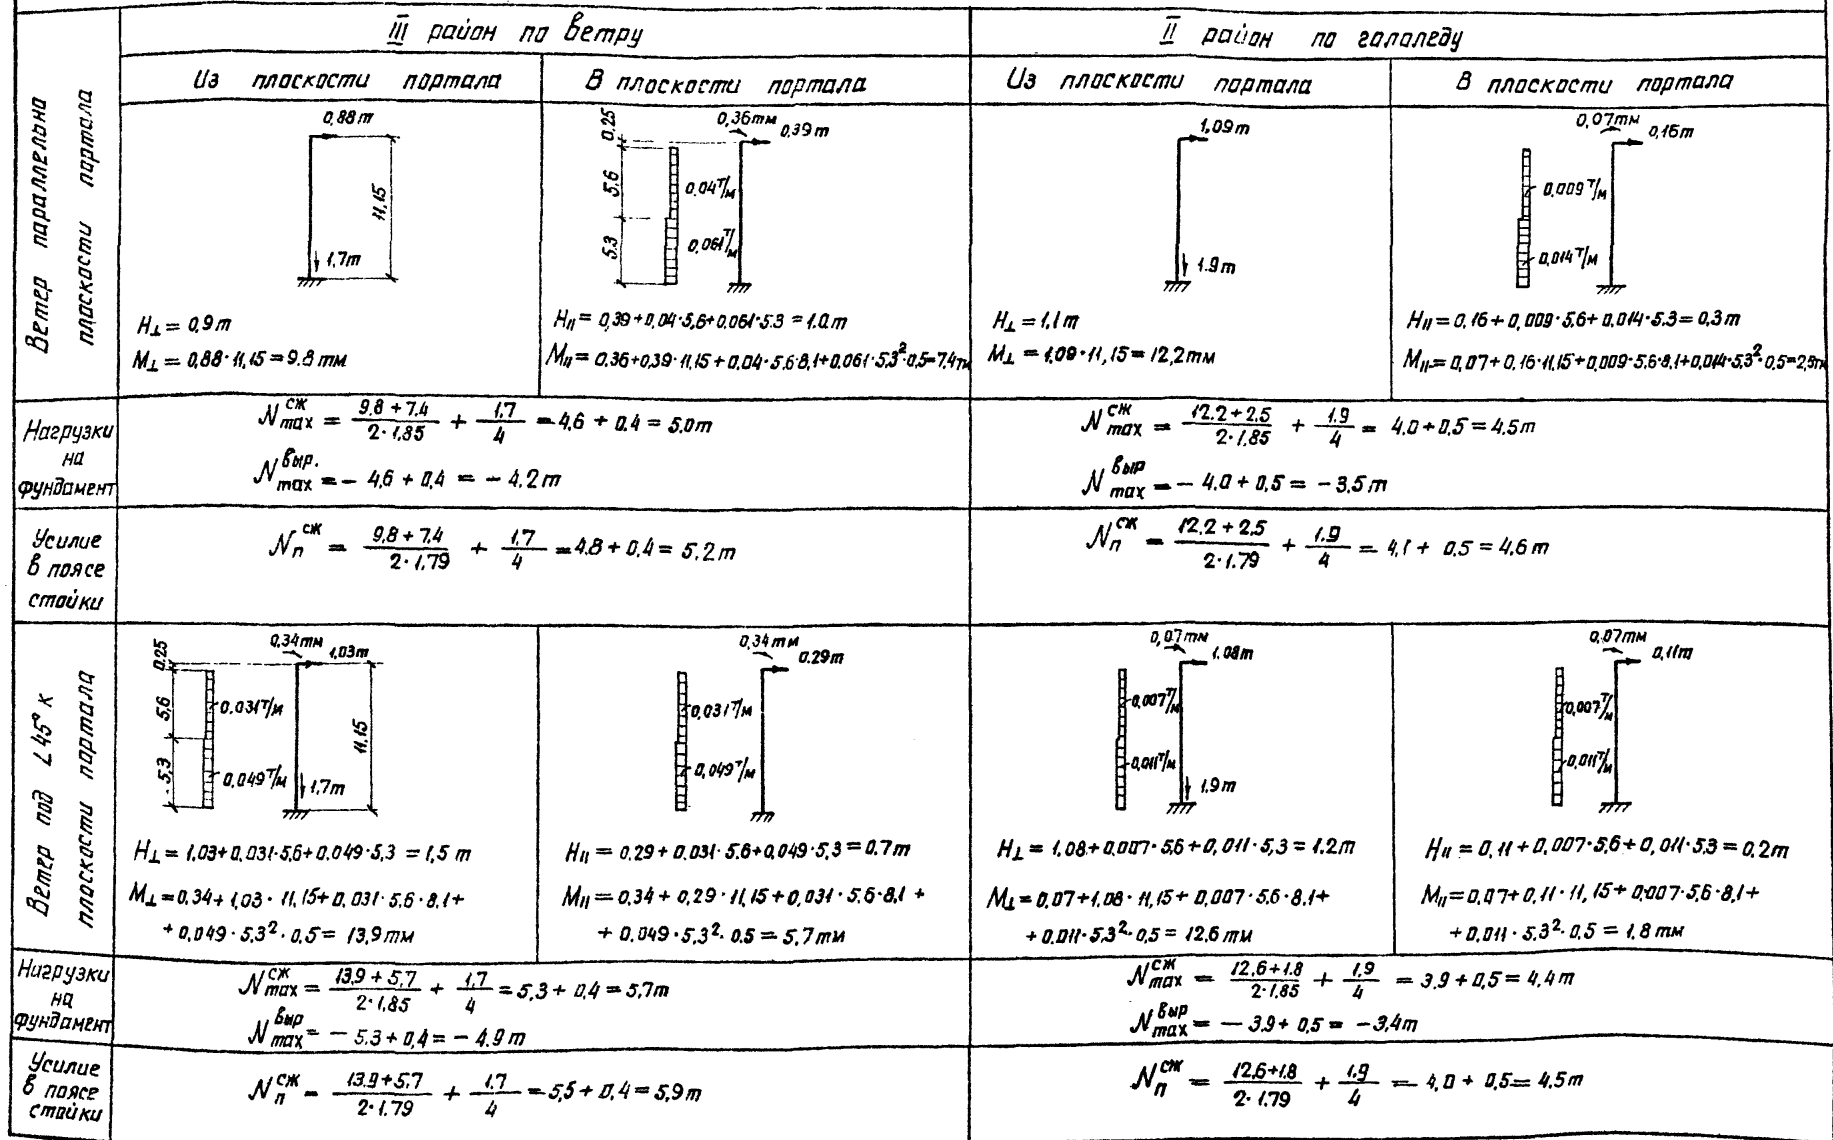 III район по ветру
II район по гололеду
Из плоскости портала
В плоскости портала
Из плоскости портала
В плоскости портала
Ветер параллельно
плоскости портала
0,88т
11,15
1,7т
H⊥ = 0,9т
M⊥ = 0,88·11,15 = 9.8 тм
0.25
5,6
5.3
0,36тм
0,39т
0.04 т/м
0,061 т/м
H॥ = 0,39+0,04·5,6+0.061·5.3 = 1.0т
M॥ = 0.36+0,39·11,15+0,04·5.6·8,1+0.061·5,3²·0,5=7.4тм
1,09т
1.9т
H⊥ = 1,1т
M⊥ = 1,09·11,15 = 12,2тм
0,07тм
0,16т
0,009 т/м
0,014 т/м
H॥ = 0,16+0,009·5,6+0,014·5.3= 0,3т
M॥ = 0,07+0,16·11,15+0,009·5,6·8,1+0,014·5,3²·0,5=2,5тм
Нагрузки
на
фундамент
N max сж = (9,8+7.4)/(2·1,85) + 1,7/4 = 4,6 + 0.4 = 5.0т
N max выр. = - 4,6 + 0,4 = - 4,2т
N max сж = (12.2+2.5)/(2·1,85) + 1.9/4 = 4,0+0,5 = 4,5т
N max выр = - 4.0 + 0,5 = -3,5т
Усилие
в поясе
стойки
N п сж = (9,8+7,4)/(2·1,79) + 1,7/4 = 4.8 + 0,4 = 5,2т
N п сж = (12,2+2,5)/(2·1.79) + 1.9/4 = 4,1 + 0,5 = 4,6т
Ветер под ∠45° к
плоскости портала
0.25
5,6
5,3
0,34тм
1,03т
0.031 т/м
0,049 т/м
11.15
1,7т
H⊥ = 1,03+0,031·5,6+0,049·5,3 = 1,5 т
M⊥ = 0,34+1,03·11,15+0,031·5,6·8,1+
+0,049·5,3²·0,5= 13,9тм
0,34тм
0.29т
0,031 т/м
0,049 т/м
H॥ = 0.29+0.031·5.6+0,049·5,3 = 0.7т
M॥ = 0,34+0,29·11,15+0,031·5,6·8,1+
+0.049·5,3²·0.5 = 5,7тм
0,07тм
1.08т
0,007 т/м
0,011 т/м
1.9т
H⊥ = 1.08+0,007·5,6+0,011·5,3 = 1.2т
M⊥ = 0,07+1,08·11,15+0,007·5,6·8,1+
+0.011·5,3²·0,5 = 12,6тм
0,07тм
0,11т
0,007 т/м
0,011 т/м
H॥ = 0,11+0,007·5,6+0,011·5.3 = 0,2т
M॥ = 0,07+0,11·11,15+0,007·5,6·8,1+
+0,011·5.3²·0,5 = 1,8тм
Нагрузки
на
фундамент
N max сж = (13,9+5,7)/(2·1,85) + 1,7/4 = 5,3 + 0,4 = 5,7т
N max выр = - 5.3 + 0,4 = - 4.9т
N max сж = (12,6+1.8)/(2·1,85) + 1,9/4 = 3.9 + 0,5 = 4,4т
N max выр = - 3.9 + 0,5 = -3,4т
Усилие
в поясе
стойки
N п сж = (13.9+5.7)/(2·1.79) + 1.7/4 = 5,5 + 0.4 = 5,9т
N п сж = (12,6+1.8)/(2·1.79) + 1.9/4 = 4,0 + 0,5 = 4.5т